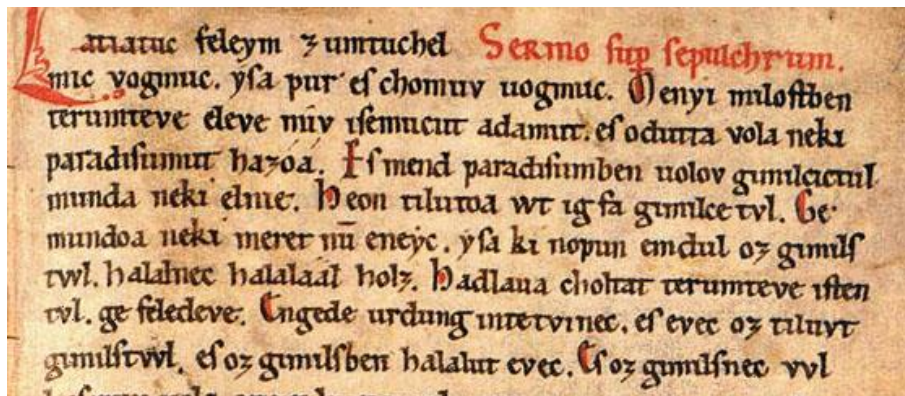 Latiatuc feleym ȝ umtuchel Sermo sup sepulchrum.
mic vogmuc. ysa pur es chomuv uogmuc. Menyi milostben
terumteve eleve miv isemucut adamut. es odutta vola neki
paradisumut hazóá. Es mend paradisumben uolov gimilcictul
munda neki elnie. Heon tilutoa wt ig fa gimilce tvl. Ge
mundoa neki meret nū eneyc. ysa ki nopun emdul oz gimils
twl. halalnec halalaál holz. Hadlaua choltat terumteve isten
tvl. ge feledeve. Engede urdung intetvinec. es evec oz tiluvt
gimilstvvl. es oz gimilsben halalut evec. Es oz gimilsnec vvl